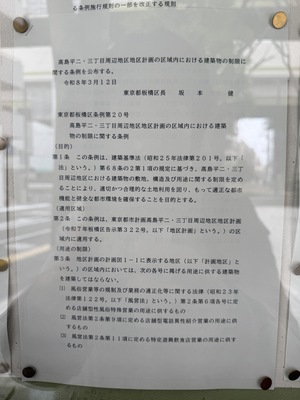 る条例施行規則の一部を改正する規則
高島平二・三丁目周辺地区地区計画の区域内における建築物の制限に
関する条例を公布する。
令和８年３月１２日
東京都板橋区長　坂　本　　健
東京都板橋区条例第２０号
高島平二・三丁目周辺地区地区計画の区域内における建築
物の制限に関する条例
（目的）
第１条　この条例は、建築基準法（昭和２５年法律第２０１号。以下「
法」という。）第６８条の２第１項の規定に基づき、高島平二・三丁
目周辺地区における建築物の敷地、構造及び用途に関する制限を定め
ることにより、適切かつ合理的な土地利用を図り、もって適正な都市
機能と健全な都市環境を確保することを目的とする。
（適用区域）
第２条　この条例は、東京都市計画高島平二・三丁目周辺地区地区計画
（令和７年板橋区告示第３２２号。以下「地区計画」という。）の区
域内に適用する。
（用途の制限）
第３条　地区計画の計画図１－１に表示する地区（以下「計画地区」と
いう。）の区域内においては、次の各号に掲げる用途に供する建築物
を建築してはならない。
(1)　風俗営業等の規制及び業務の適正化等に関する法律（昭和２３年
法律第１２２号。以下「風営法」という。）第２条第６項各号に定
める店舗型性風俗特殊営業の用途に供するもの
(2)　風営法第２条第９項に定める店舗型電話異性紹介営業の用途に供
するもの
(3)　風営法第２条第１１項に定める特定遊興飲食店営業の用途に供す
るもの